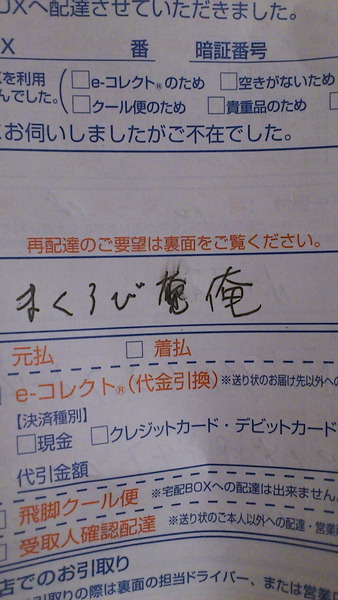 OXへ配達させていただきました。
OX 番 暗証番号
Xを利用 □e-コレクト®のため □空きがないため
んでした。 □クール便のため □貴重品のため □
にお伺いしましたがご不在でした。
再配達のご要望は裏面をご覧ください。
まくろび 俺
元払 □ 着払
e-コレクト®(代金引換) ※送り状のお届け先以外への
【決済種別】
□現金 □クレジットカード・デビットカード
代引金額
□ 飛脚クール便 ※宅配BOXへの配達は出来ません。
□ 受取人確認配達 ※送り状のご本人以外への配達・営業所
店でのお引取り
引取りの際は裏面の担当ドライバー、または営業